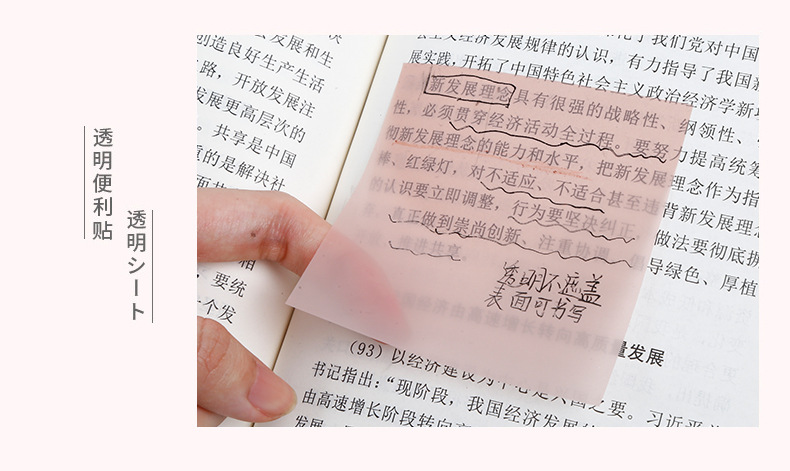 透明便利贴
透明シート
创造良好生产生活
路，开放发展注
发展更高层次的
。共享是中国
质的是解决社
相
，要统
一个发
会主义经济发展规律的认识，有力指导了我国
展实践，开拓了中国特色社会主义政治经济学新
新发展理念具有很强的战略性、纲领性、
性，必须贯穿经济活动全过程。要努力提高统筹
彻新发展理念的能力和水平，把新发展理念作为指
棒、红绿灯，对不适应、不适合甚至违背新发展理
的认识要立即调整，行为要坚决纠正，做法要彻底
真正做到崇尚创新、注重协调、倡导绿色、厚植
推进共享。
透明不遮盖
表面可书写
国经济由高速增长转向高质量发展
（93）以经济建设为中心是兴国之要。习近平
书记指出：“现阶段，我国经济发展
由高速增长阶段转向
发展